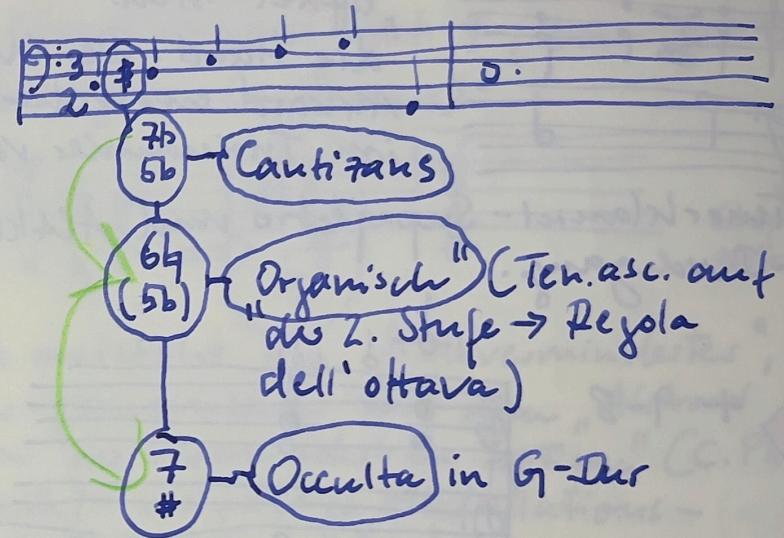 3
2
#
7b
5b Cantizans
6♮
(5b) „Organisch“ (Ten. asc. auf
der 2. Stufe → Regola
dell'ottava)
7
# Occulta in G-Dur